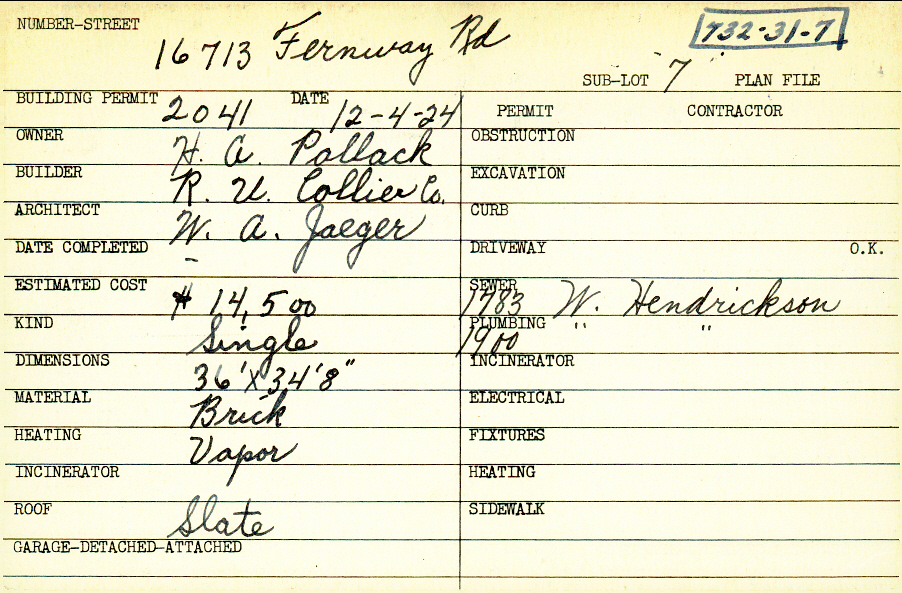 NUMBER-STREET
16713 Fernway Rd
732-31-7
SUB-LOT 7 PLAN FILE
BUILDING PERMIT 2041 DATE 12-4-24
PERMIT CONTRACTOR
OWNER H. A. Pollack
OBSTRUCTION
BUILDER R. U. Collier Co.
EXCAVATION
ARCHITECT W. A. Jaeger
CURB
DATE COMPLETED -
DRIVEWAY O.K.
ESTIMATED COST $ 14,500
SEWER 1783 W. Hendrickson
KIND Single
PLUMBING 1900 " "
DIMENSIONS 36'x34'8"
INCINERATOR
MATERIAL Brick
ELECTRICAL
HEATING Vapor
FIXTURES
INCINERATOR
HEATING
ROOF Slate
SIDEWALK
GARAGE-DETACHED-ATTACHED